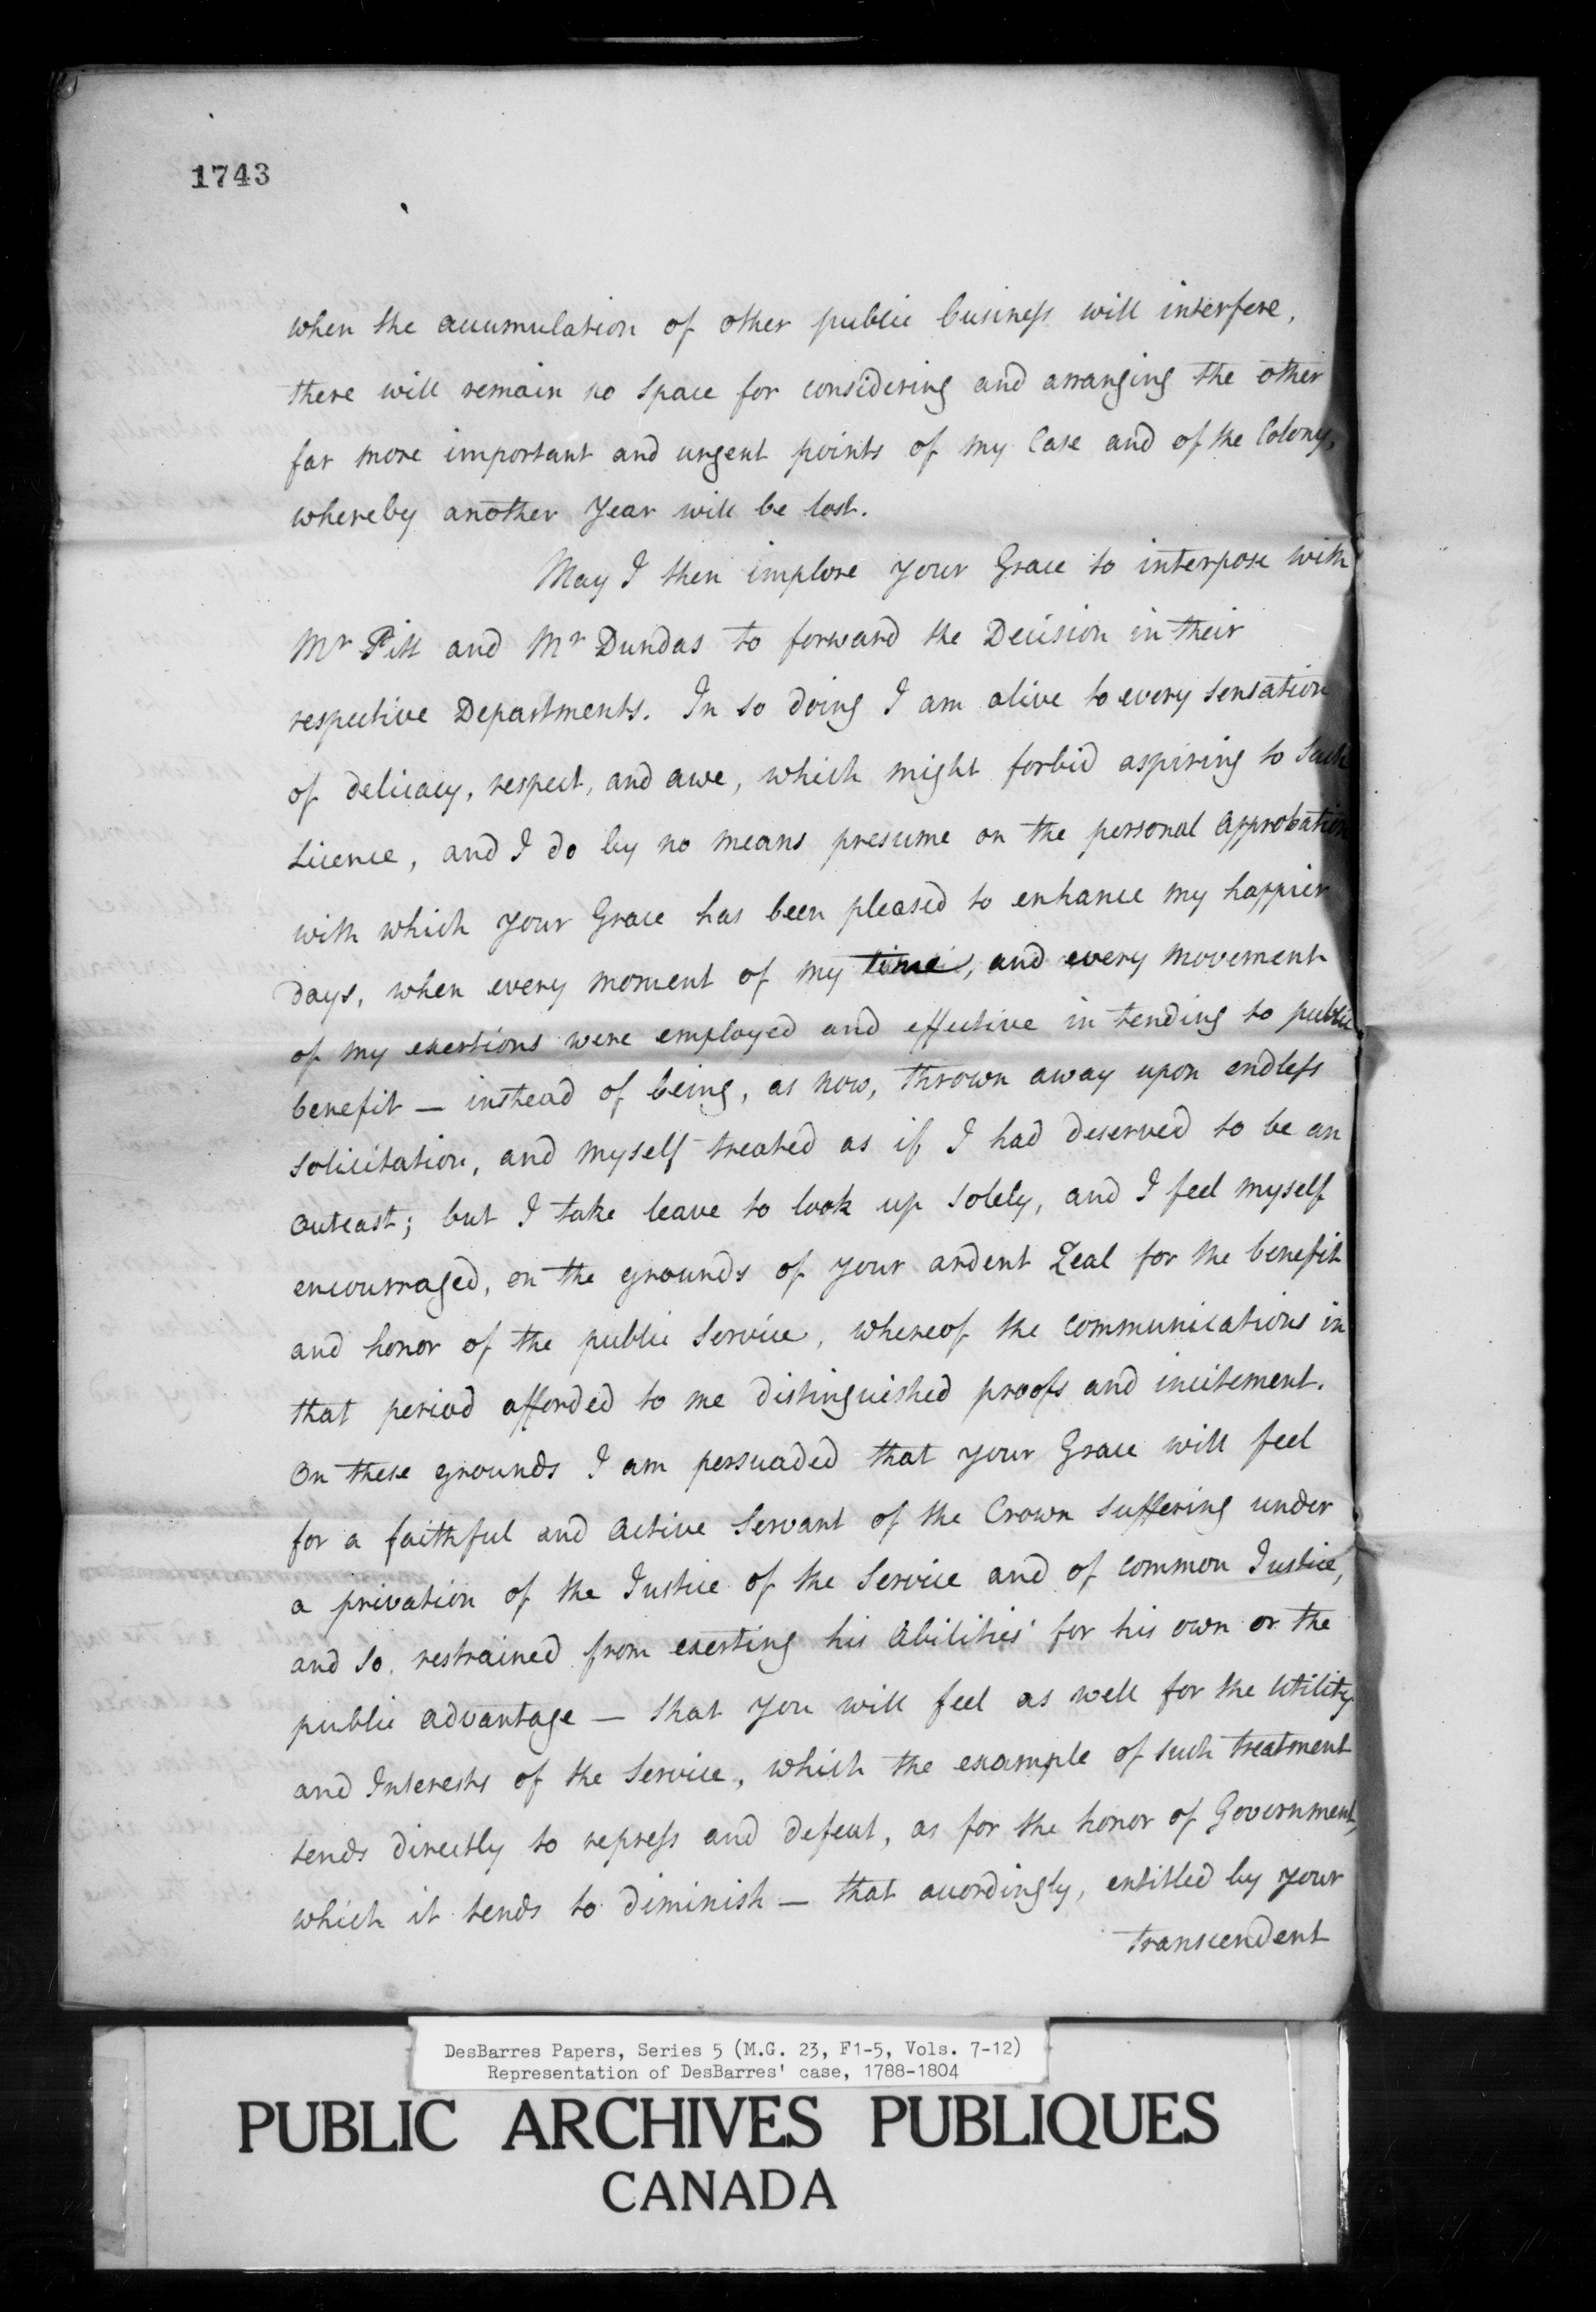 1743
when the accumulation of other public business will interfere,
there will remain no space for considering and arranging the other
far more important and urgent points of my Case and of the Colony,
whereby another Year will be lost.
May I then implore your Grace to interpose with
Mr Pitt and Mr Dundas to forward the Decision in their
respective Departments. In so doing I am alive to every sensation
of delicacy, respect, and awe, which might forbid aspiring to such
Licence, and I do by no means presume on the personal approbation
with which your Grace has been pleased to enhance my happier
days, when every moment of my time, and every movement
of my exertions were employed and effective in tending to public
benefit — instead of being, as now, thrown away upon endless
solicitation, and myself treated as if I had deserved to be an
outcast; but I take leave to look up solely, and I feel myself
encourraged, on the grounds of your ardent Zeal for the benefit
and honor of the public Service, whereof the communications in
that period afforded to me distinguished proofs and incitement.
On these grounds I am persuaded that your Grace will feel
for a faithful and active Servant of the Crown suffering under
a privation of the Justice of the Service and of common Justice,
and so restrained from exerting his abilities for his own or the
public advantage — that you will feel as well for the Utility
and Interests of the Service, which the example of such treatment
tends directly to repress and defeat, as for the honor of Government,
which it tends to diminish — that accordingly, entitled by your
transcendent
DesBarres Papers, Series 5 (M.G. 23, F1-5, Vols. 7-12)
Representation of DesBarres' case, 1788-1804
PUBLIC ARCHIVES PUBLIQUES
CANADA